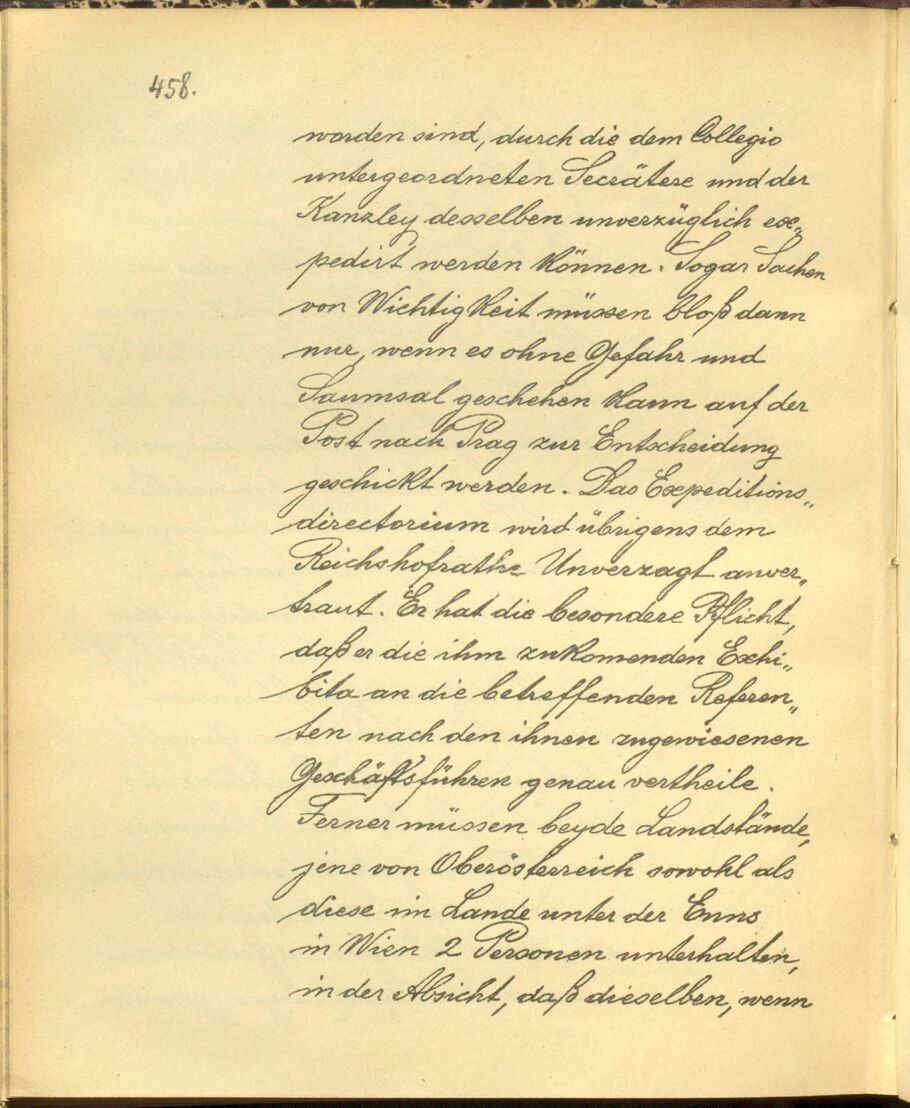 458.
worden sind, durch die dem Collegio
untergeordneten Secrätere und der
Kanzley desselben unverzüglich ex„
pedirt werden können. Sogar Sachen
von Wichtigkeit müssen bloß dann
nur, wenn es ohne Gefahr und
Saumsal geschehen kann auf der
Post nach Prag zur Entscheidung
geschickt werden. Das Expeditions„
directorium wird übrigens dem
Reichshofrathe Unverzagt anver„
traut. Er hat die besondere Pflicht,
daß er die ihm zukomenden Exhi„
bita an die betreffenden Referen„
ten nach den ihnen zugewiesenen
Geschäftsführen genau vertheile.
Ferner müssen beyde Landstände,
jene von Oberösterreich sowohl als
diese im Lande unter der Enns
in Wien 2 Personen unterhalten,
in der Absicht, daß dieselben, wenn